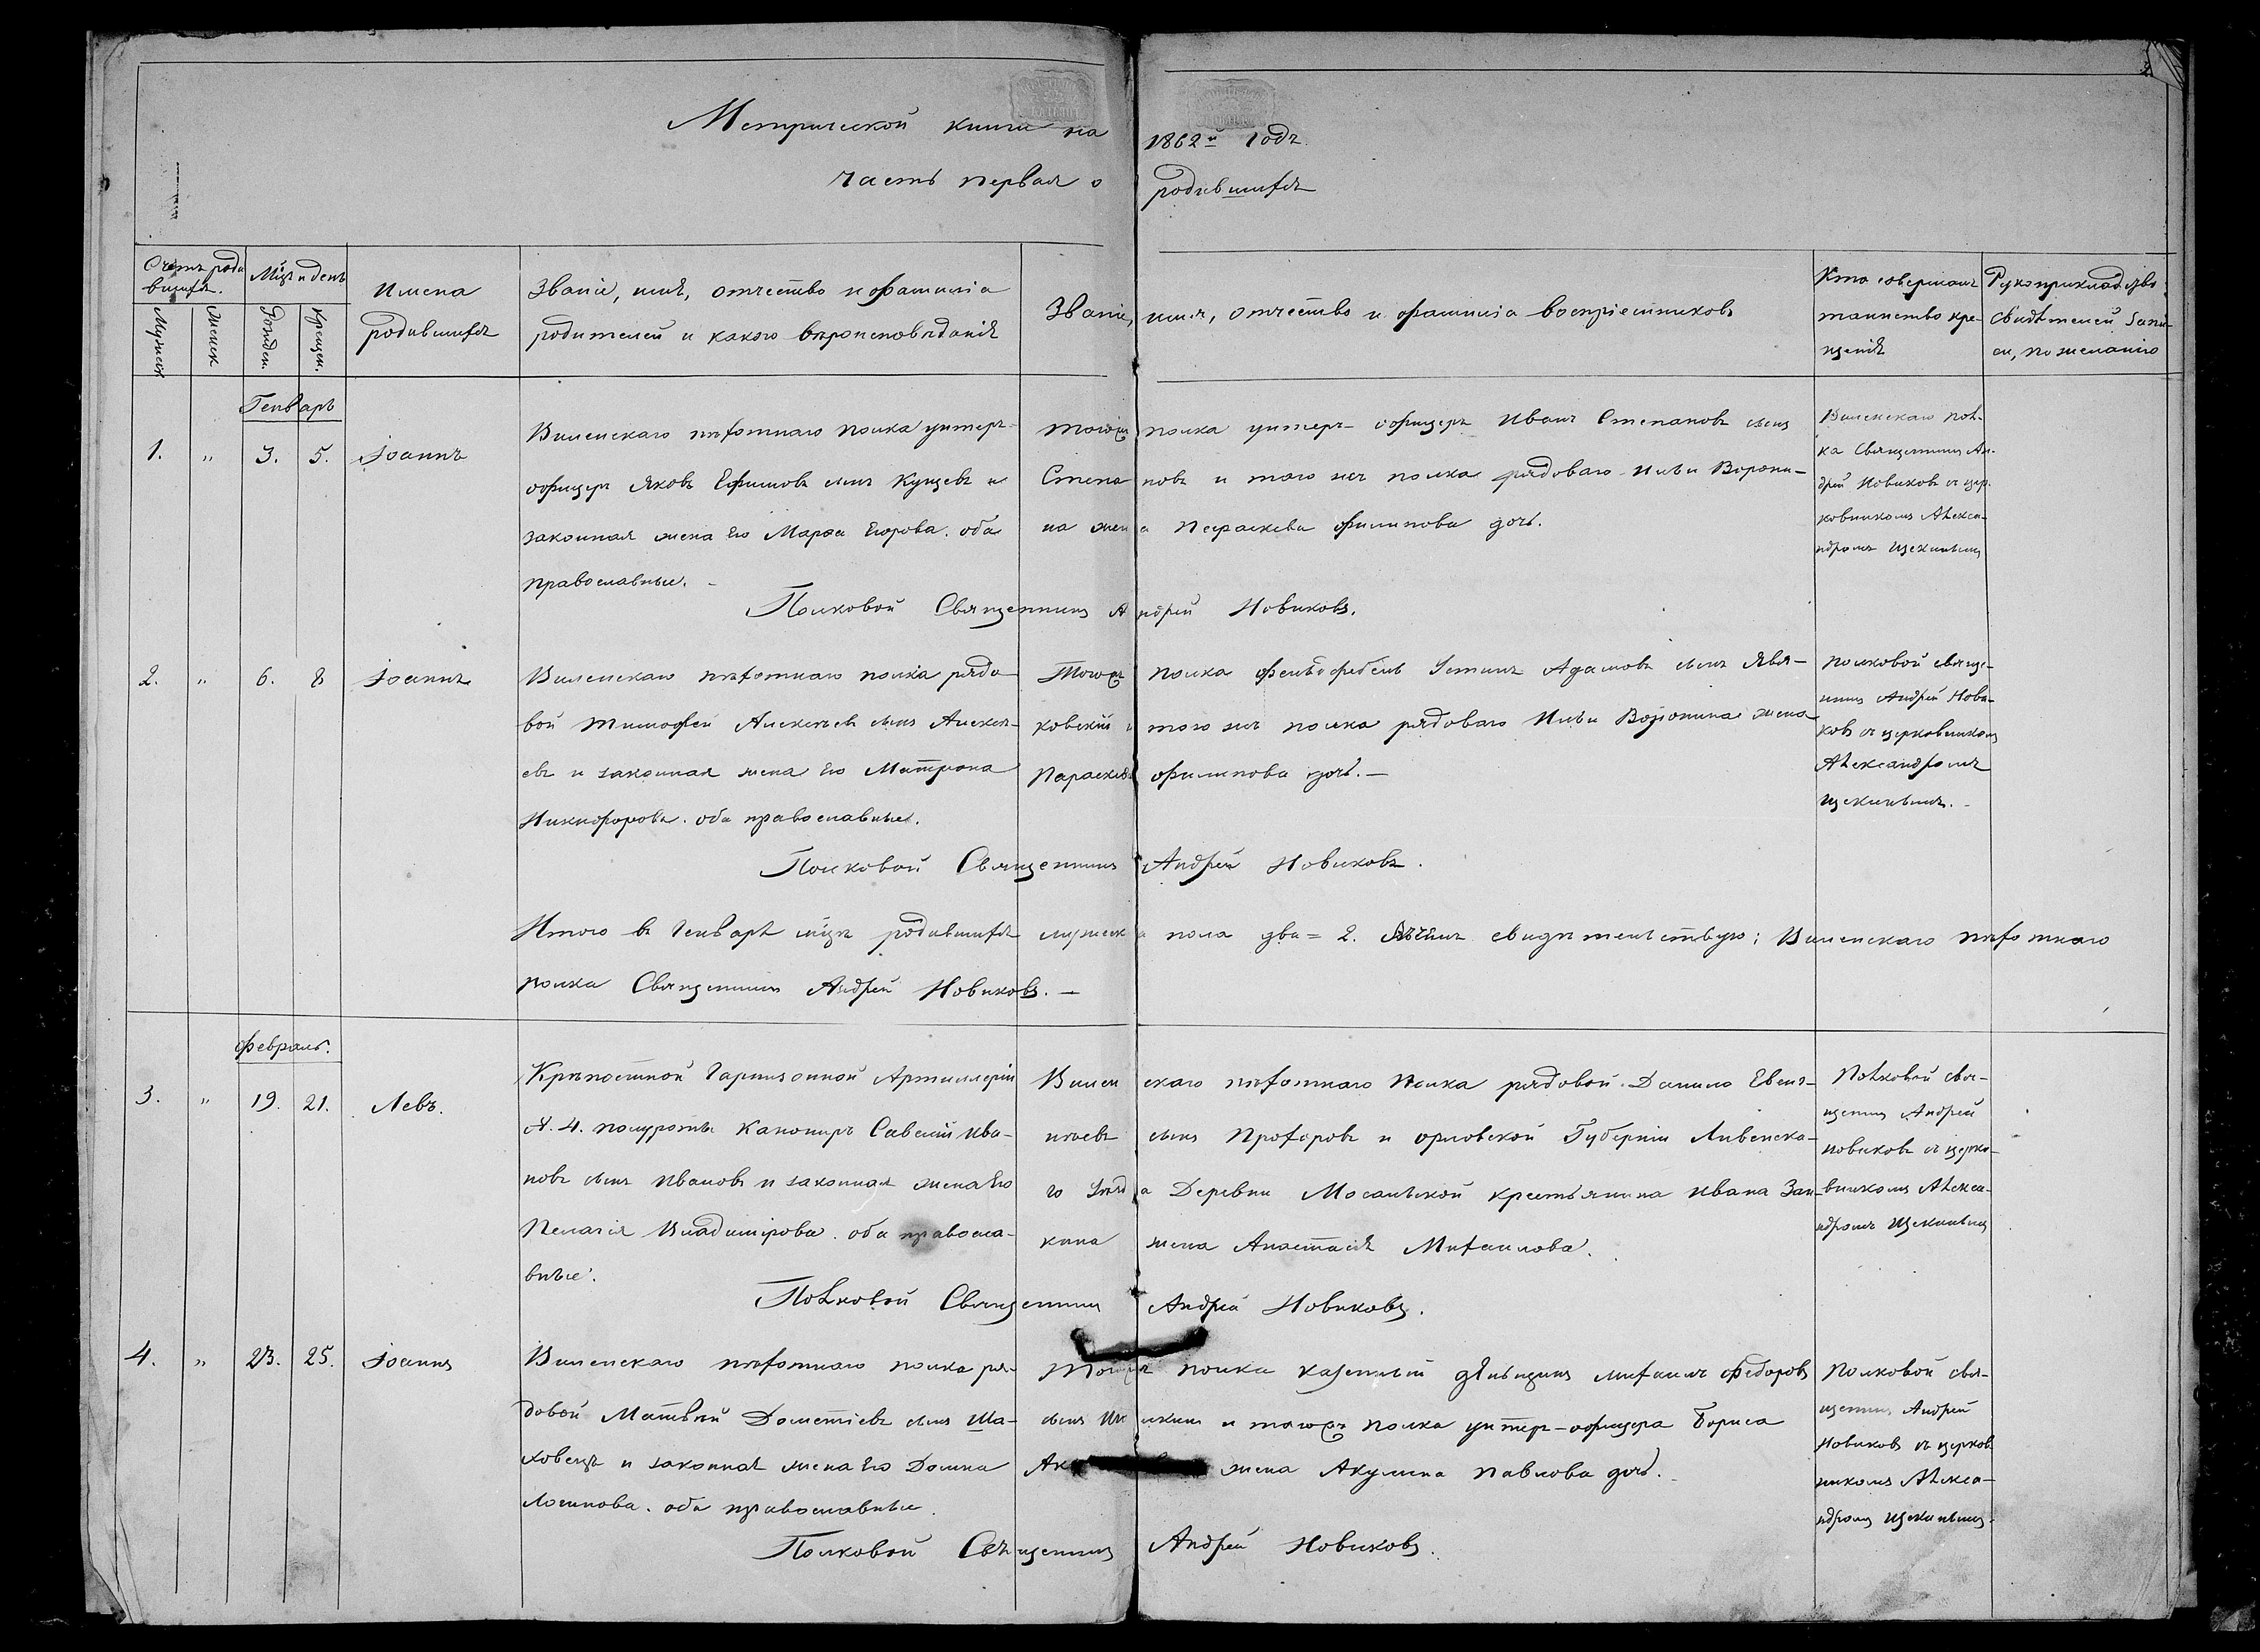 Метрической книги на 1862й годъ.
часть первая о родившихся
Счетъ родившихся.
Мужеск
Женск
Мѣсяцъ и день
Рожден.
Крещен.
Имена
родившихся
Званіе, имя, отчество и фамилія
родителей и какого вѣроисповѣданія
Званіе, имя, отчество и фамилія воспріемниковъ
Кто совершалъ
таинство кре-
щенія
Рукоприкладство
свидѣтелей запи-
си, по желанію
Генварь
1. " 3. 5. Іоаннъ
Виленскаго пѣхотнаго полка унтеръ-
офицеръ Яковъ Ефимовъ сынъ Купцевъ и
законная жена его Марѳа Егорова. оба
православные.
Тогожъ полка унтеръ-офицеръ Иванъ Степановъ сынъ
Степановъ и того же полка рядоваго Ильи Ворони-
на жена Параскева Филипова дочь.
Виленскаго пол-
ка Священникъ Ан-
дрей Новиковъ съ цер-
ковникомъ Алекса-
ндромъ
Полковой Священникъ Андрей Новиковъ.
2. " 6. 8 Іоаннъ
Виленскаго пѣхотнаго полка рядо-
вой Тимофей Алексѣевъ сынъ Алексѣ-
евъ и законная жена его Матрона
Никифорова. оба православные.
Тогожъ полка фельдфебель Устинъ Адамовъ сынъ Явл-
ковскій и того же полка рядоваго Ильи Воронина жена
Параскева Филипова дочь.—
Полковой свяще-
нникъ Андрей Нови-
ковъ съ церковникомъ
Александромъ
Полковой Священникъ Андрей Новиковъ.
Итого въ Генварѣ мѣсяцѣ родившихся мужеска пола два = 2. свидѣтельствую: Виленскаго пѣхотнаго
полка Священникъ Андрей Новиковъ.—
Февраль.
3. " 19. 21. Левъ.
Крѣпостной Гарнизонной Артиллеріи
№ 4. полуроты Канониръ Савелій Ива-
новъ сынъ Ивановъ и законная жена его
Пелагія Владимірова. оба правосла-
вные.
Виленскаго пѣхотнаго полка рядовой Данило Евсиг-
нѣевъ сынъ Прохоровъ и Орловской Губерніи Ливенска-
го Уѣзда Деревни Мосальской крестьянина Ивана Заи-
кина жена Анастасія Михаилова.
Полковой свя-
щенникъ Андрей
Новиковъ съ церко-
вникомъ Алекса-
ндромъ
Полковой Священникъ Андрей Новиковъ.
4. " 23. 25. Іоаннъ
Виленскаго пѣхотнаго полка ря-
довой Матвѣй Дометіевъ сынъ Ша-
ховецъ и законная жена его Домна
Логинова. оба православные.
Тогожъ полка казенный деньщикъ Михаилъ Федоровъ
сынъ и тогожъ полка унтеръ-офицера Бориса
жена Акулина Павлова дочь.
Полковой свя-
щенникъ Андрей
Новиковъ съ церков-
никомъ Алекса-
ндромъ
Полковой Священникъ Андрей Новиковъ.